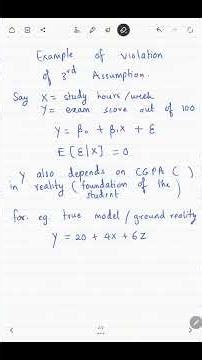 Example of violation
of 3rd Assumption.
Say X = study hours/week
Y = exam score out of 100
Y = β₀ + β₁X + ε
E[ε|X] = 0
Y also depends on CGPA ( )
in reality (foundation of the
student)
for eg. true model / ground reality
Y = 20 + 4X + 6Z